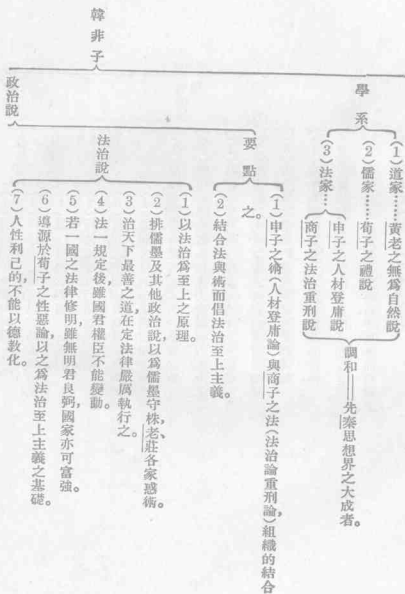 韓非子
學系
(1)道家……黃老之無爲自然說
(2)儒家……荀子之禮說
(3)法家……
申子之人材登庸說
商子之法治重刑說
調和——先秦思想界之大成者。
政治說
要點
(1)申子之術(人材登庸論)與商子之法(法治論重刑論)組織的結合
之。
(2)結合法與術而倡法治至上主義。
法治說
(1)以法治爲至上之原理。
(2)排儒墨及其他政治說,以爲儒墨守株,老、莊各家惑術。
(3)治天下最善之道,在定法律嚴厲執行之。
(4)法一規定後,雖國君權臣不能變動。
(5)若一國之法律修明,雖無明君良弼,國家亦可富強。
(6)導源於荀子之性惡論,以之爲法治至上主義之基礎。
(7)人性利己的,不能以德敎化。